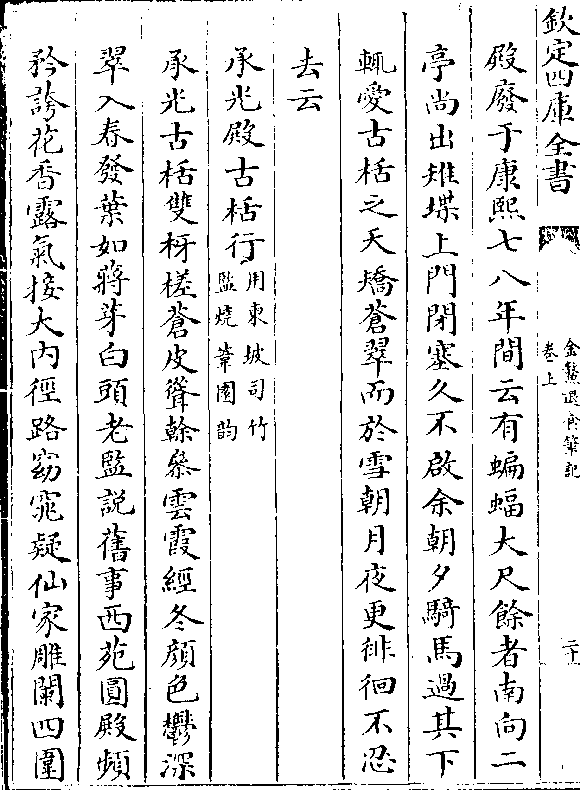 欽定四庫全書
金鰲退食筆記
卷上
二十
殿廢于康熙七八年間云有蝙蝠大尺餘者南向二
亭尚出雉堞上門閉塞久不啟余朝夕騎馬過其下
輒愛古栝之夭矯蒼翠而於雪朝月夜更徘徊不忍
去云
承光殿古栝行用東坡司竹
監燒葦園韵
承光古栝雙枒槎蒼皮聳榦叅雲霞經冬顔色鬱深
翠入春發葉如蔣芽白頭老監説舊事西苑圓殿頻
矜誇花香露氣接大内徑路窈窕疑仙家雕闌四圍